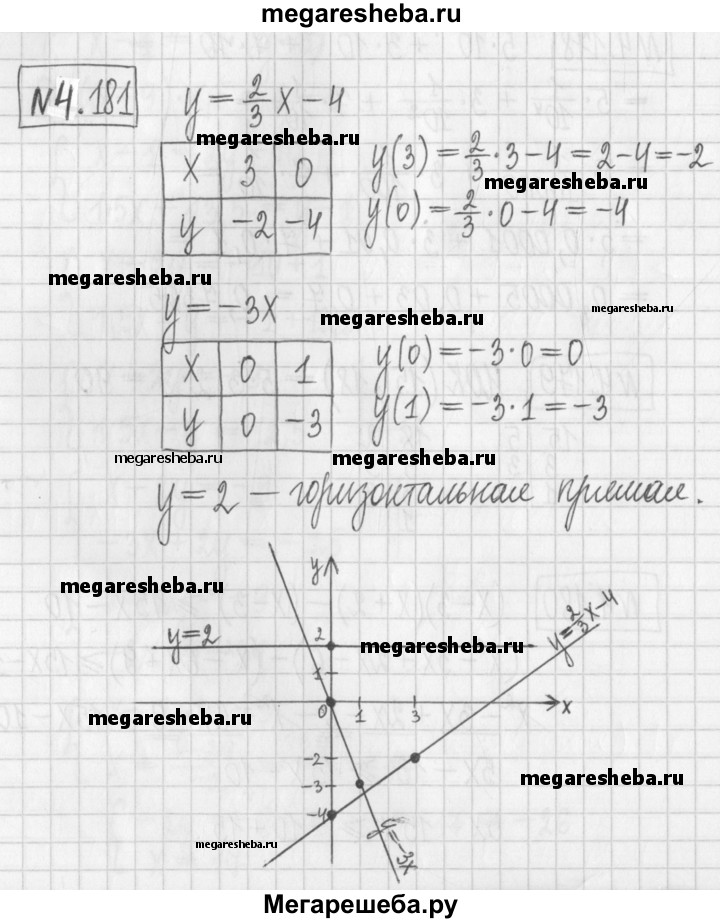 megaresheba.ru
№4.181
y = 2/3 x − 4
megaresheba.ru
x 3 0
y −2 −4
y(3) = 2/3 · 3 − 4 = 2 − 4 = −2
megaresheba.ru
y(0) = 2/3 · 0 − 4 = −4
megaresheba.ru
y = −3x
megaresheba.ru
megaresheba.ru
x 0 1
y 0 −3
y(0) = −3 · 0 = 0
y(1) = −3 · 1 = −3
megaresheba.ru
megaresheba.ru
y = 2 — горизонтальная прямая.
megaresheba.ru
y
y = 2
2
megaresheba.ru
y = 2/3 x − 4
1
0 1 3 x
megaresheba.ru
−2
−3
megaresheba.ru
−4
y = −3x
megaresheba.ru
Мегарешеба.ру